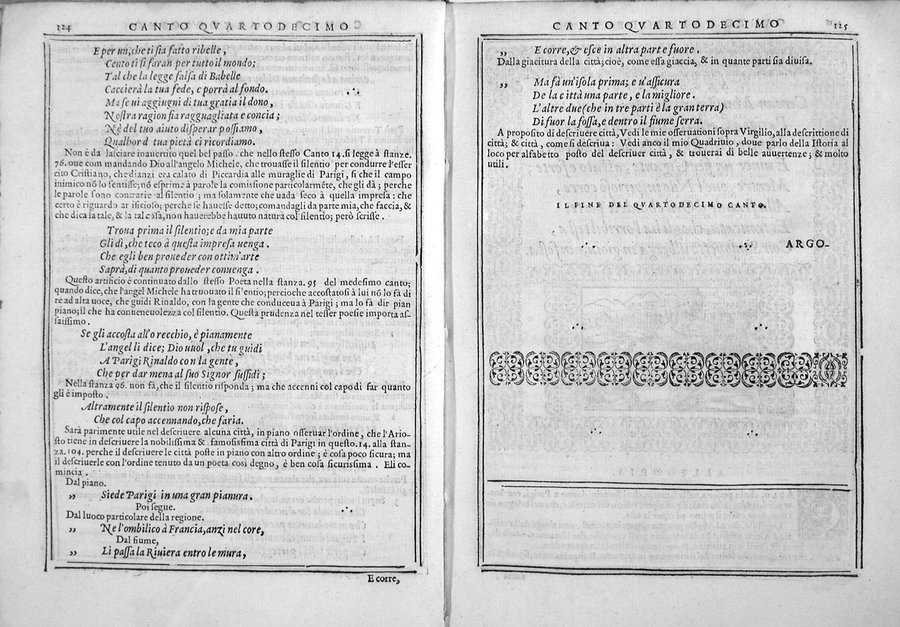 124 CANTO QVARTODECIMO
E per un, che ti sia fatto ribelle,
Cento ti si faran per tutto il mondo;
Tal che la legge falsa di Babelle
Caccierà la tua fede, e porrà al fondo.
Ma se ui aggiungi di tua gratia il dono,
Nostra ragion sia ragguagliata e concia;
Nè del tuo aiuto disperar possiamo,
Qualhor di tua pietà ci ricordiamo.
Non è da lasciare inauertito quel bel passo. che nello stesso Canto 14. si legge à stanze.
76. oue comandando Dio all'angelo Michele, che trouasse il silentio per condurre l'esser
cito Cristiano, che dianzi era calato di Piccardia alle muraglie di Parigi, si che il campo
inimico nō lo sentisse; nō esprime à parole la comissione particolarmēte, che gli dà; perche
le parole sono contrarie al silentio; ma solamente che uada seco à quella impresa: che
certo è riguardo artificioso; perche se hauesse detto; comandagli da parte mia, che faccia, &
che dica la tale, & la tal cosa, non hauerebbe hauuto natura col silentio; però scrisse.
Troua prima il silentio; e da mia parte
Gli dì, che teco à questa impresa uenga.
Che egli ben proueder con ottim'arte
Saprà, di quanto proueder conuenga.
Questo artificio è continuato dello stesso Poeta nella stanza. 95 del medesimo canto;
quando dice, che l'angel Michele ha trouato il silentio; percioche accostatosi à lui nō lo fà di
re ad alta uoce, che guidi Rinaldo, con la gente che conduceua à Parigi; ma lo fà dir pian
piano; il che ha conueneuolezza col silentio. Questa prudenza nel tesser poesie importa as-
saissimo.
Se gli accosta all'orecchio, è pianamente
L'angel li dice; Dio uuol, che tu guidi
A Parigi Rinaldo con la gente,
Che per dar mena al suo Signor sussidi;
Nella stanza 96. non fà, che il silentio risponda; ma che accenni col capo di far quanto
gli è imposto.
Altramente il silentio non rispose,
Che col capo accennando, che faria.
Sarà parimente utile nel descriuere alcuna città, in piano osseruar l'ordine, che l'Ario-
sto tiene in descriuere la nobilissima & famosissima città di Parigi in questo. 14. alla stan-
za. 104. perche il descriuere le città poste in piano con altro ordine; è cosa poco sicura; ma
il descriuerle con l'ordine tenuto da un poeta così degno, è ben cosa sicurissima. Eli co-
mincia.
Dal piano.
„ Siede Parigi in una gran pianura.
Poi segue.
Dal luoco particolare della regione.
„ Ne l'ombilico à Francia, anzi nel core,
Dal fiume,
„ Li passa la Riuiera entro le mura,
E corre,
CANTO QVARTODECIMO 125
„ E corre, & esce in altra parte fuore.
Dalla giacitura della città; cioè, come essa giaccia, & in quante parti sia diuisa.
„ Ma fà un'isola prima; e u'assicura
De la città una parte, e la migliore.
L'altre due (che in tre parti è la gran terra)
Di fuor la fossa, e dentro il fiume serra.
A proposito di descriuere città, Vedi le mie osseruationi sopra Virgilio, alla descrittione di
città; & città, come si descriua: Vedi anco il mio Quadriuio, doue parlo della Istoria al
loco per alfabetto posto del descriuer città, & trouerai di belle auuertenze; & molto
utili.
IL FINE DEL QVARTODECIMO CANTO.
ARGO-